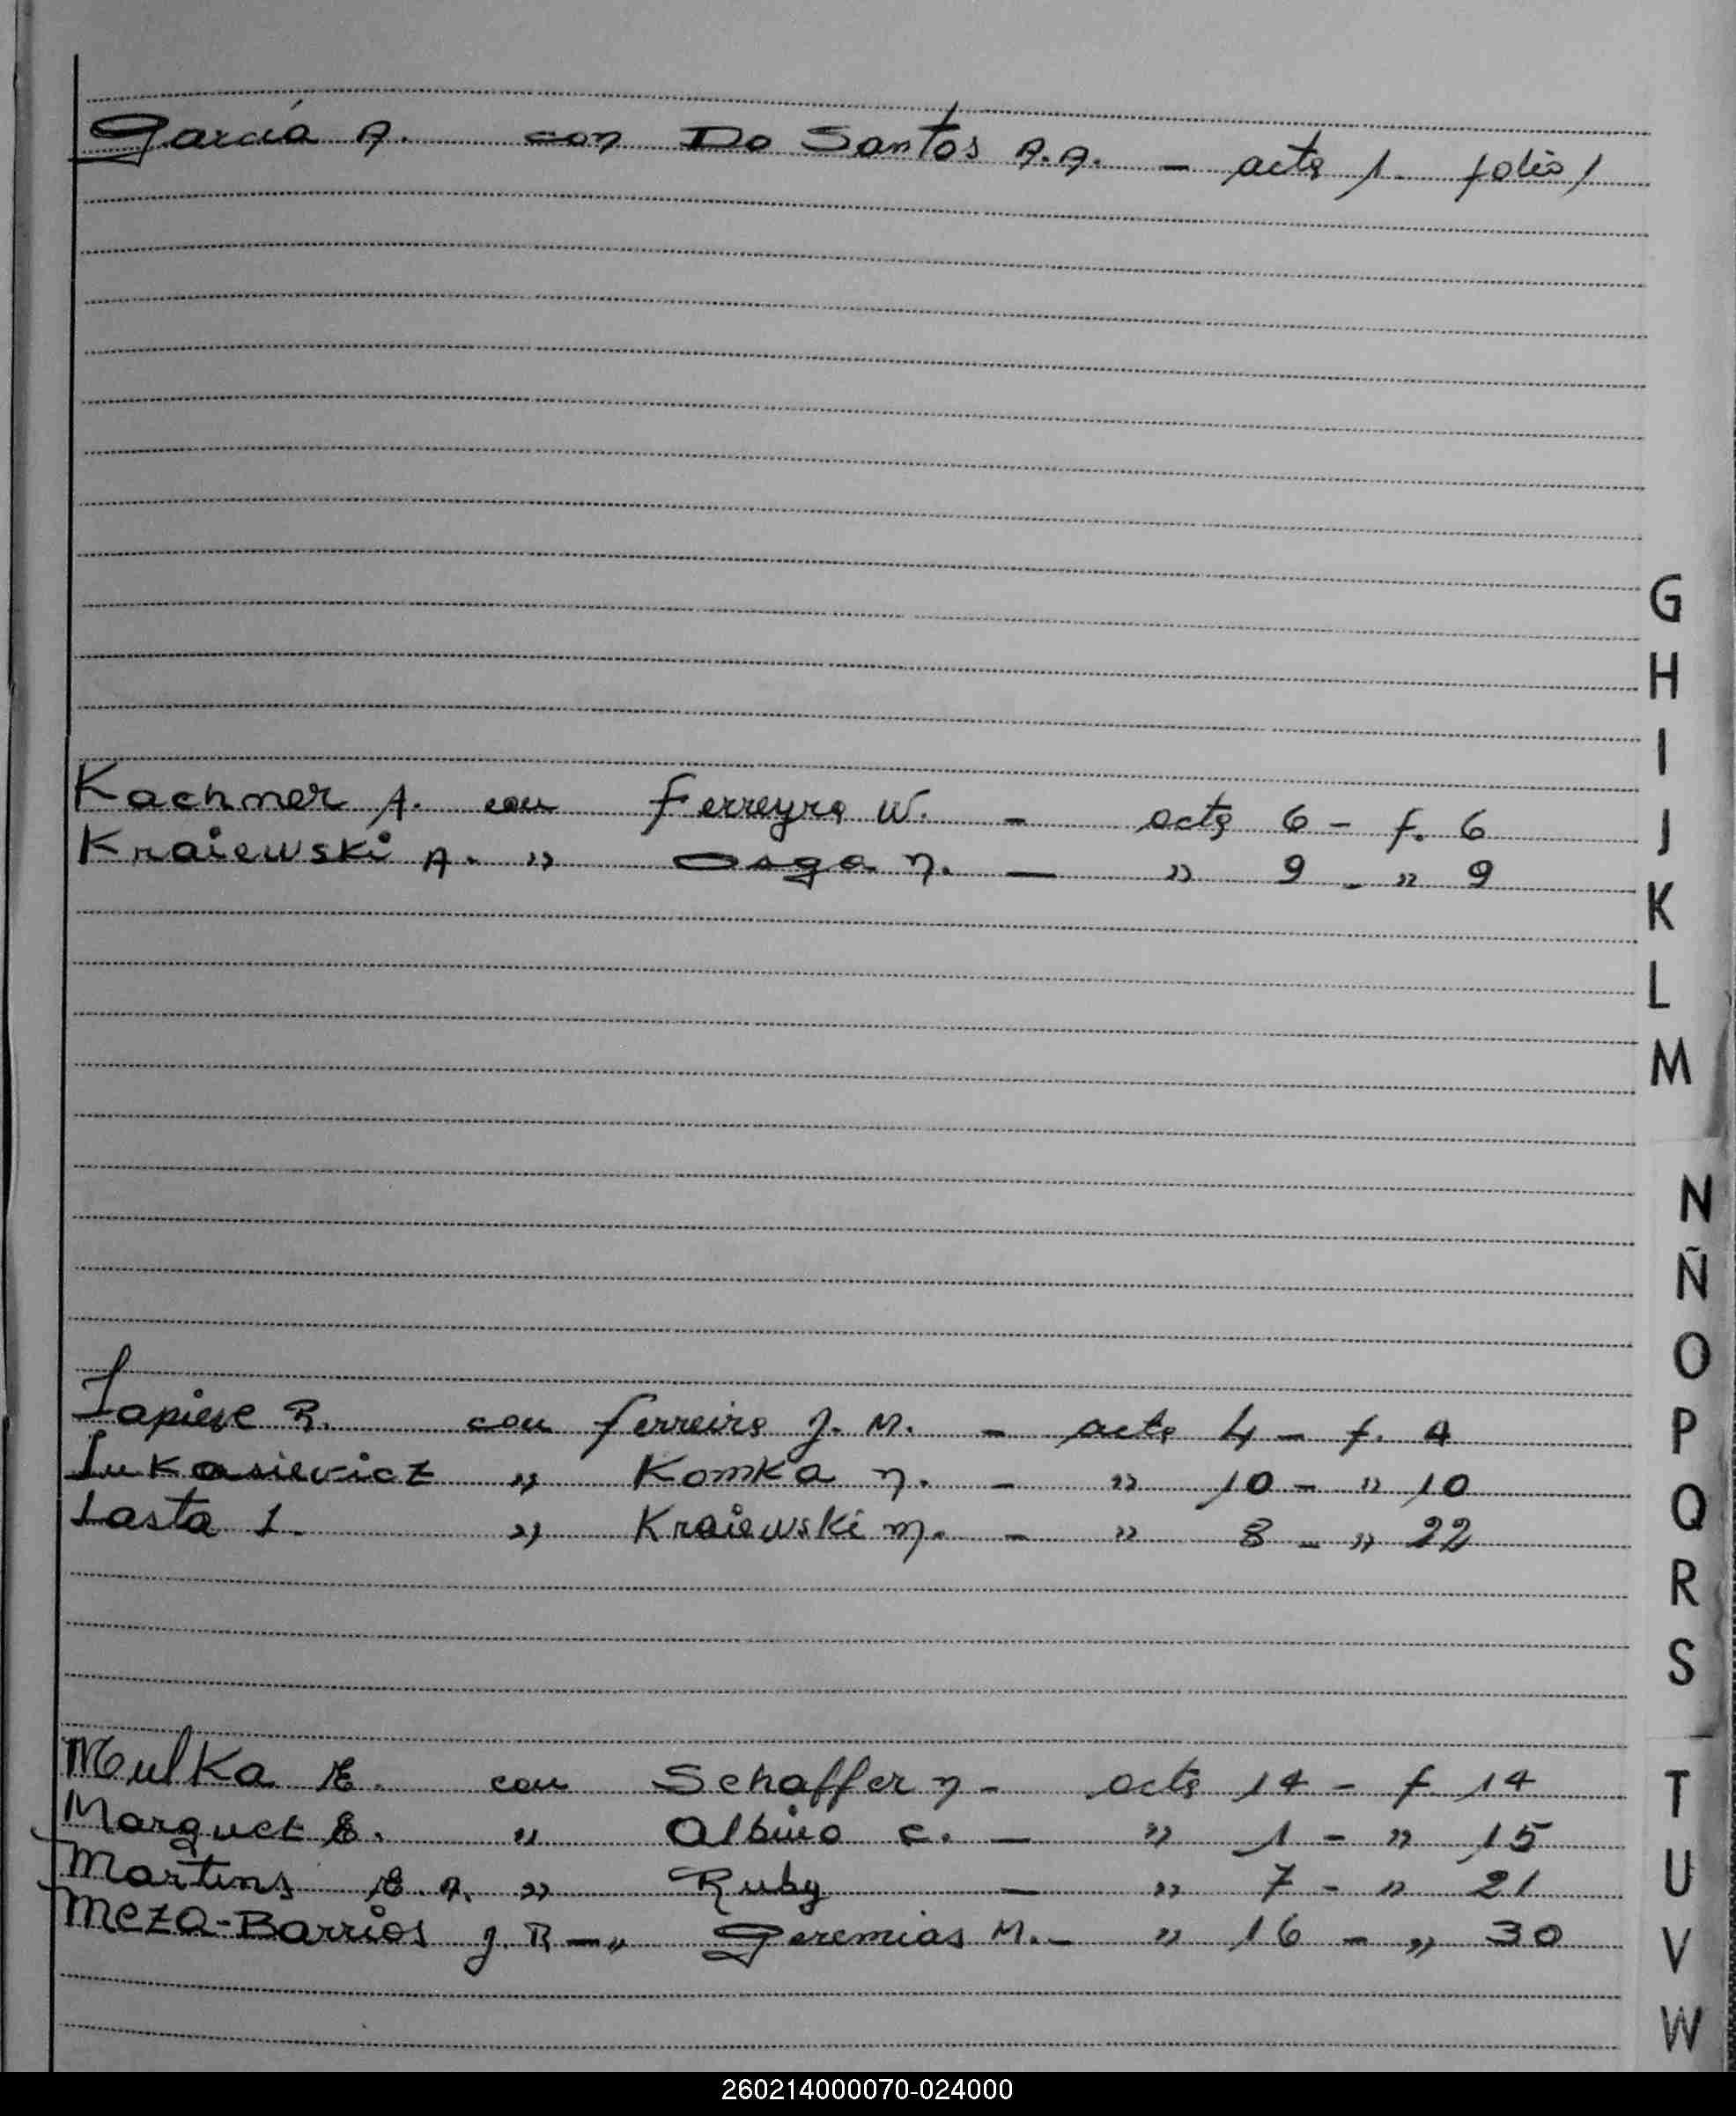 García A. con Do Santos A.A. - acta 1. folio 1
Kachmer A. con Ferreyra W. - acta 6 - f. 6
Kraiewski A. " Osga N. — " 9 - " 9
Lapiese R. con Ferreira J. M. - acta 4 - f. 4
Lukasievicz " Komka N. - " 10 - " 10
Lasta L. " Kraiewski M. - " 8 - " 22
Mulka E. con Schaffer N - acta 14 - f. 14
Marquet E. " Albino C. — " 1 - " 15
Martins E. A. " Ruby — " 7 - " 21
Meza-Barrios J. R — " Geremias M. - " 16 - " 30
G
H
I
J
K
L
M
N
Ñ
O
P
Q
R
S
T
U
V
W
260214000070-024000